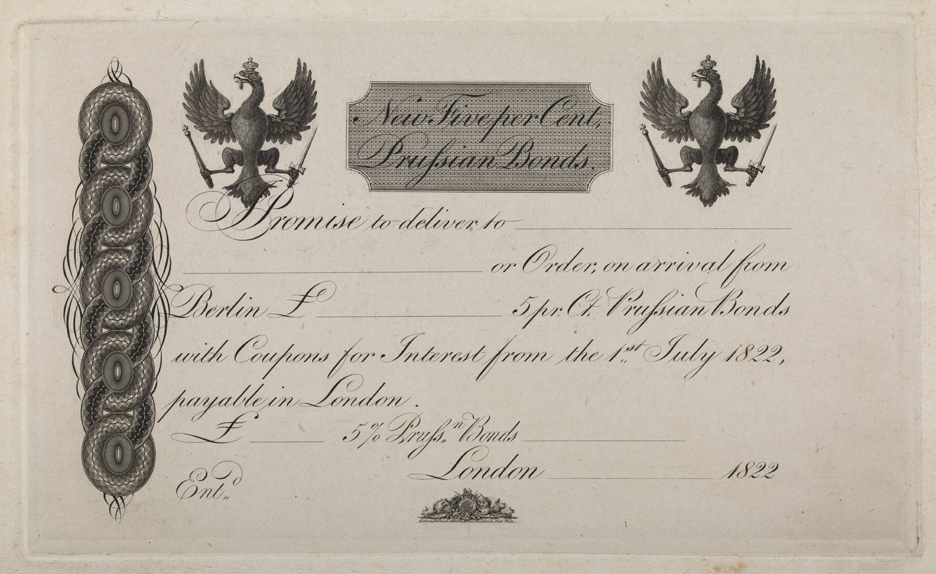 New Five per Cent,
Prußian Bonds.
I Promise to deliver, to
or Order, on arrival from
Berlin £ 5 pr. Ct. Prußian Bonds
with Coupons for Interest from the 1.st July 1822,
payable in London.
£ 5% Pruß.n Bonds
London 1822
Ent.d